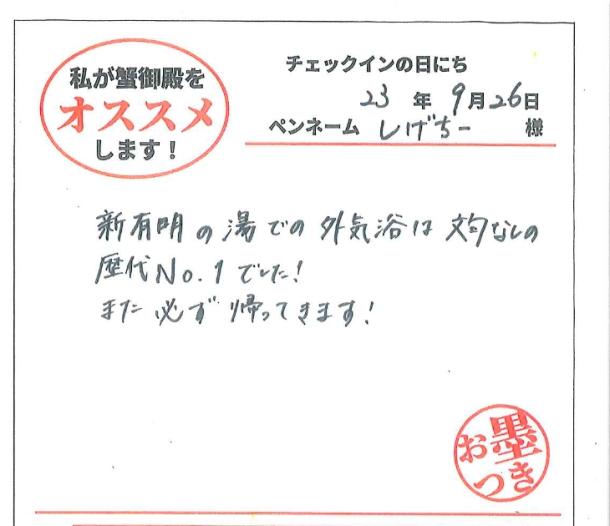 私が蟹御殿を
オススメ
します！
チェックインの日にち
23年9月26日
ペンネーム しげちー 様
新有明の湯での外気浴は文句なしの
歴代No.1でした！
また必ず帰ってきます！
お墨
つき